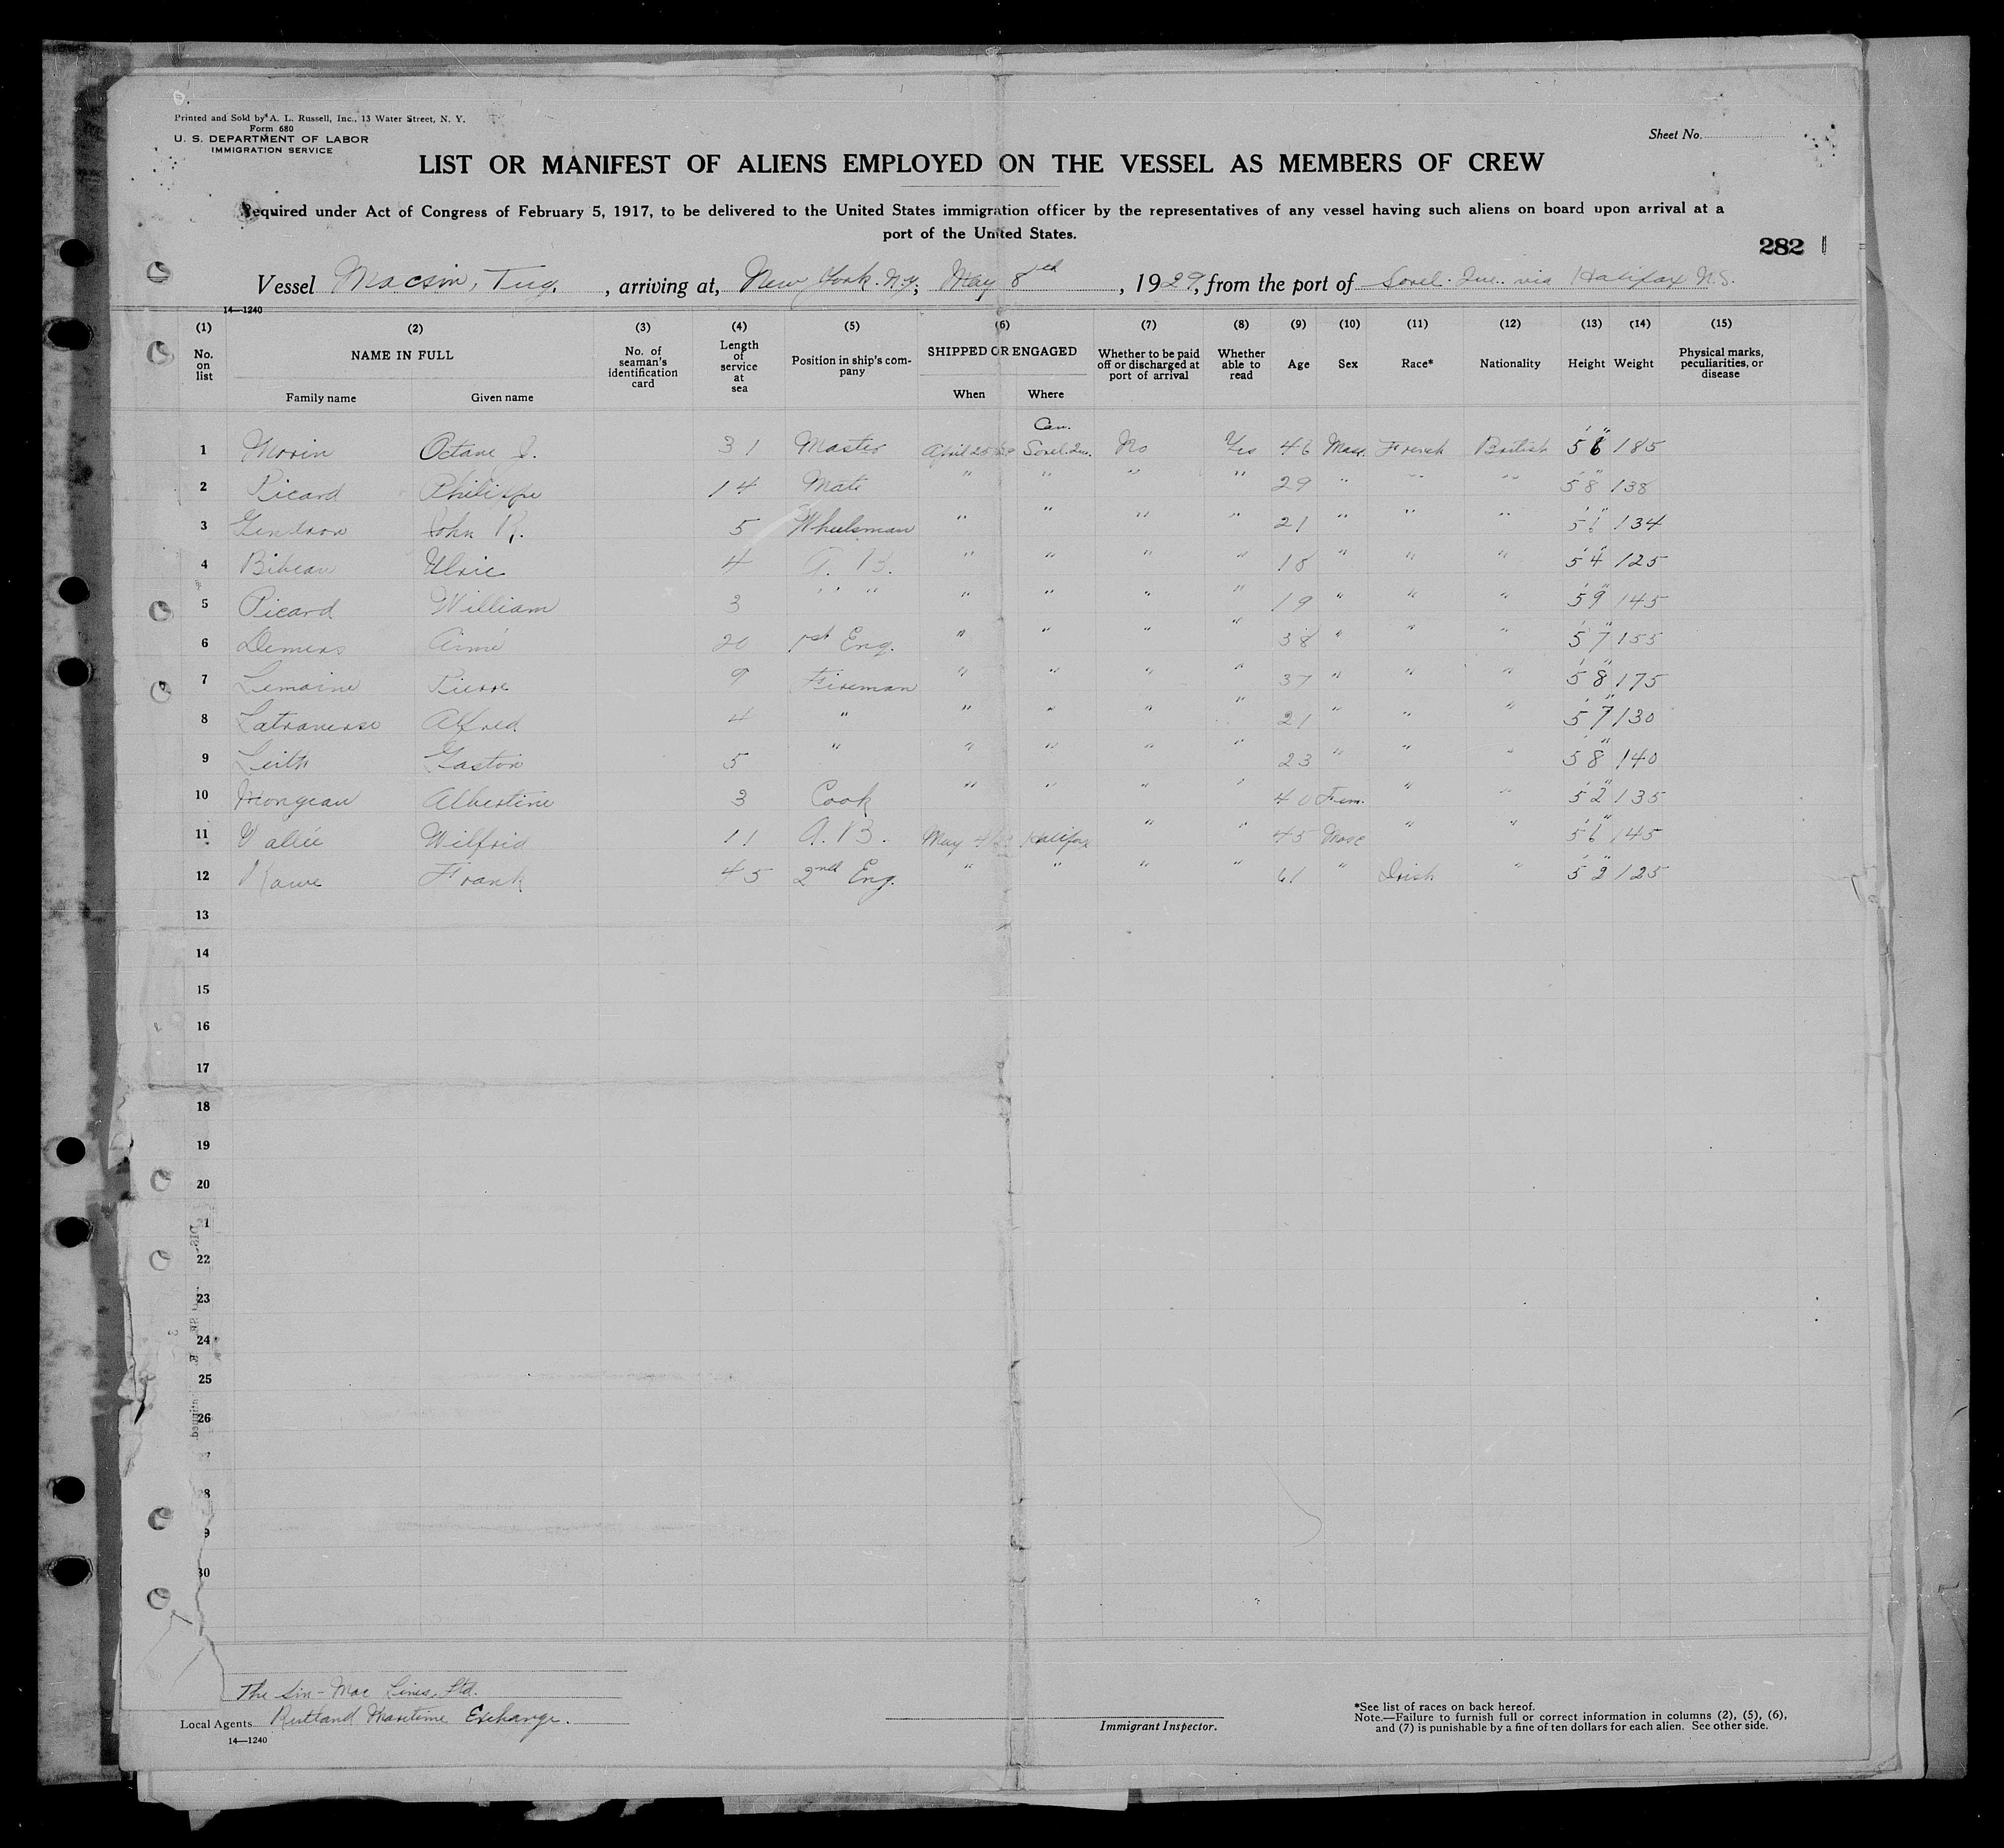 Printed and Sold by A. L. Russell, Inc., 13 Water Street, N. Y.
Form 680
U. S. DEPARTMENT OF LABOR
IMMIGRATION SERVICE
Sheet No.
LIST OR MANIFEST OF ALIENS EMPLOYED ON THE VESSEL AS MEMBERS OF CREW
Required under Act of Congress of February 5, 1917, to be delivered to the United States immigration officer by the representatives of any vessel having such aliens on board upon arrival at a
port of the United States.
282
Vessel Macsin, Tug. , arriving at, New York. N.Y; May 8th , 1929, from the port of Sorel. Que. via Halifax N.S.
14—1240
(1) (2) (3) (4) (5) (6) (7) (8) (9) (10) (11) (12) (13) (14) (15)
No. on list NAME IN FULL Family name Given name No. of seaman's identification card Length of service at sea Position in ship's company SHIPPED OR ENGAGED When Where Whether to be paid off or discharged at port of arrival Whether able to read Age Sex Race* Nationality Height Weight Physical marks, peculiarities, or disease
Can.
1 Morin Octave J. 31 Master April 25 Sorel. Que. No Yes 46 Masc. French British 5' 6" 185
2 Picard Philippe 14 Mate " " " " 29 " " " 5' 8" 138
3 Gendron John R. 5 Wheelsman " " " " 21 " " " 5' 6" 134
4 Bibeau Ulric 4 A. B. " " " " 18 " " " 5' 4" 125
5 Picard William 3 " " " " " " 19 " " " 5' 9" 145
6 Demers Aimé 20 1st Eng. " " " " 38 " " " 5' 7" 155
7 Lemoine Pierre 9 Fireman " " " " 37 " " " 5' 8" 175
8 Latraverse Alfred 4 " " " " " 21 " " " 5' 7" 130
9 Leith Gaston 5 " " " " " 23 " " " 5' 8" 140
10 Mongeau Albertine 3 Cook " " " " 40 Fem. " " 5' 2" 135
11 Vallée Wilfrid 11 A. B. May Halifax " " 45 Masc " " 5' 6" 145
12 Frank 45 2nd Eng. " " " " 61 " Irish " 5' 2" 125
13
14
15
16
17
18
19
20
1
22
23
24
25
26
7
8
9
30
The Sin-Mac Lines, Ltd.
Local Agents Rutland Maritime Exchange.
14—1240
Immigrant Inspector.
*See list of races on back hereof.
Note.—Failure to furnish full or correct information in columns (2), (5), (6),
and (7) is punishable by a fine of ten dollars for each alien. See other side.